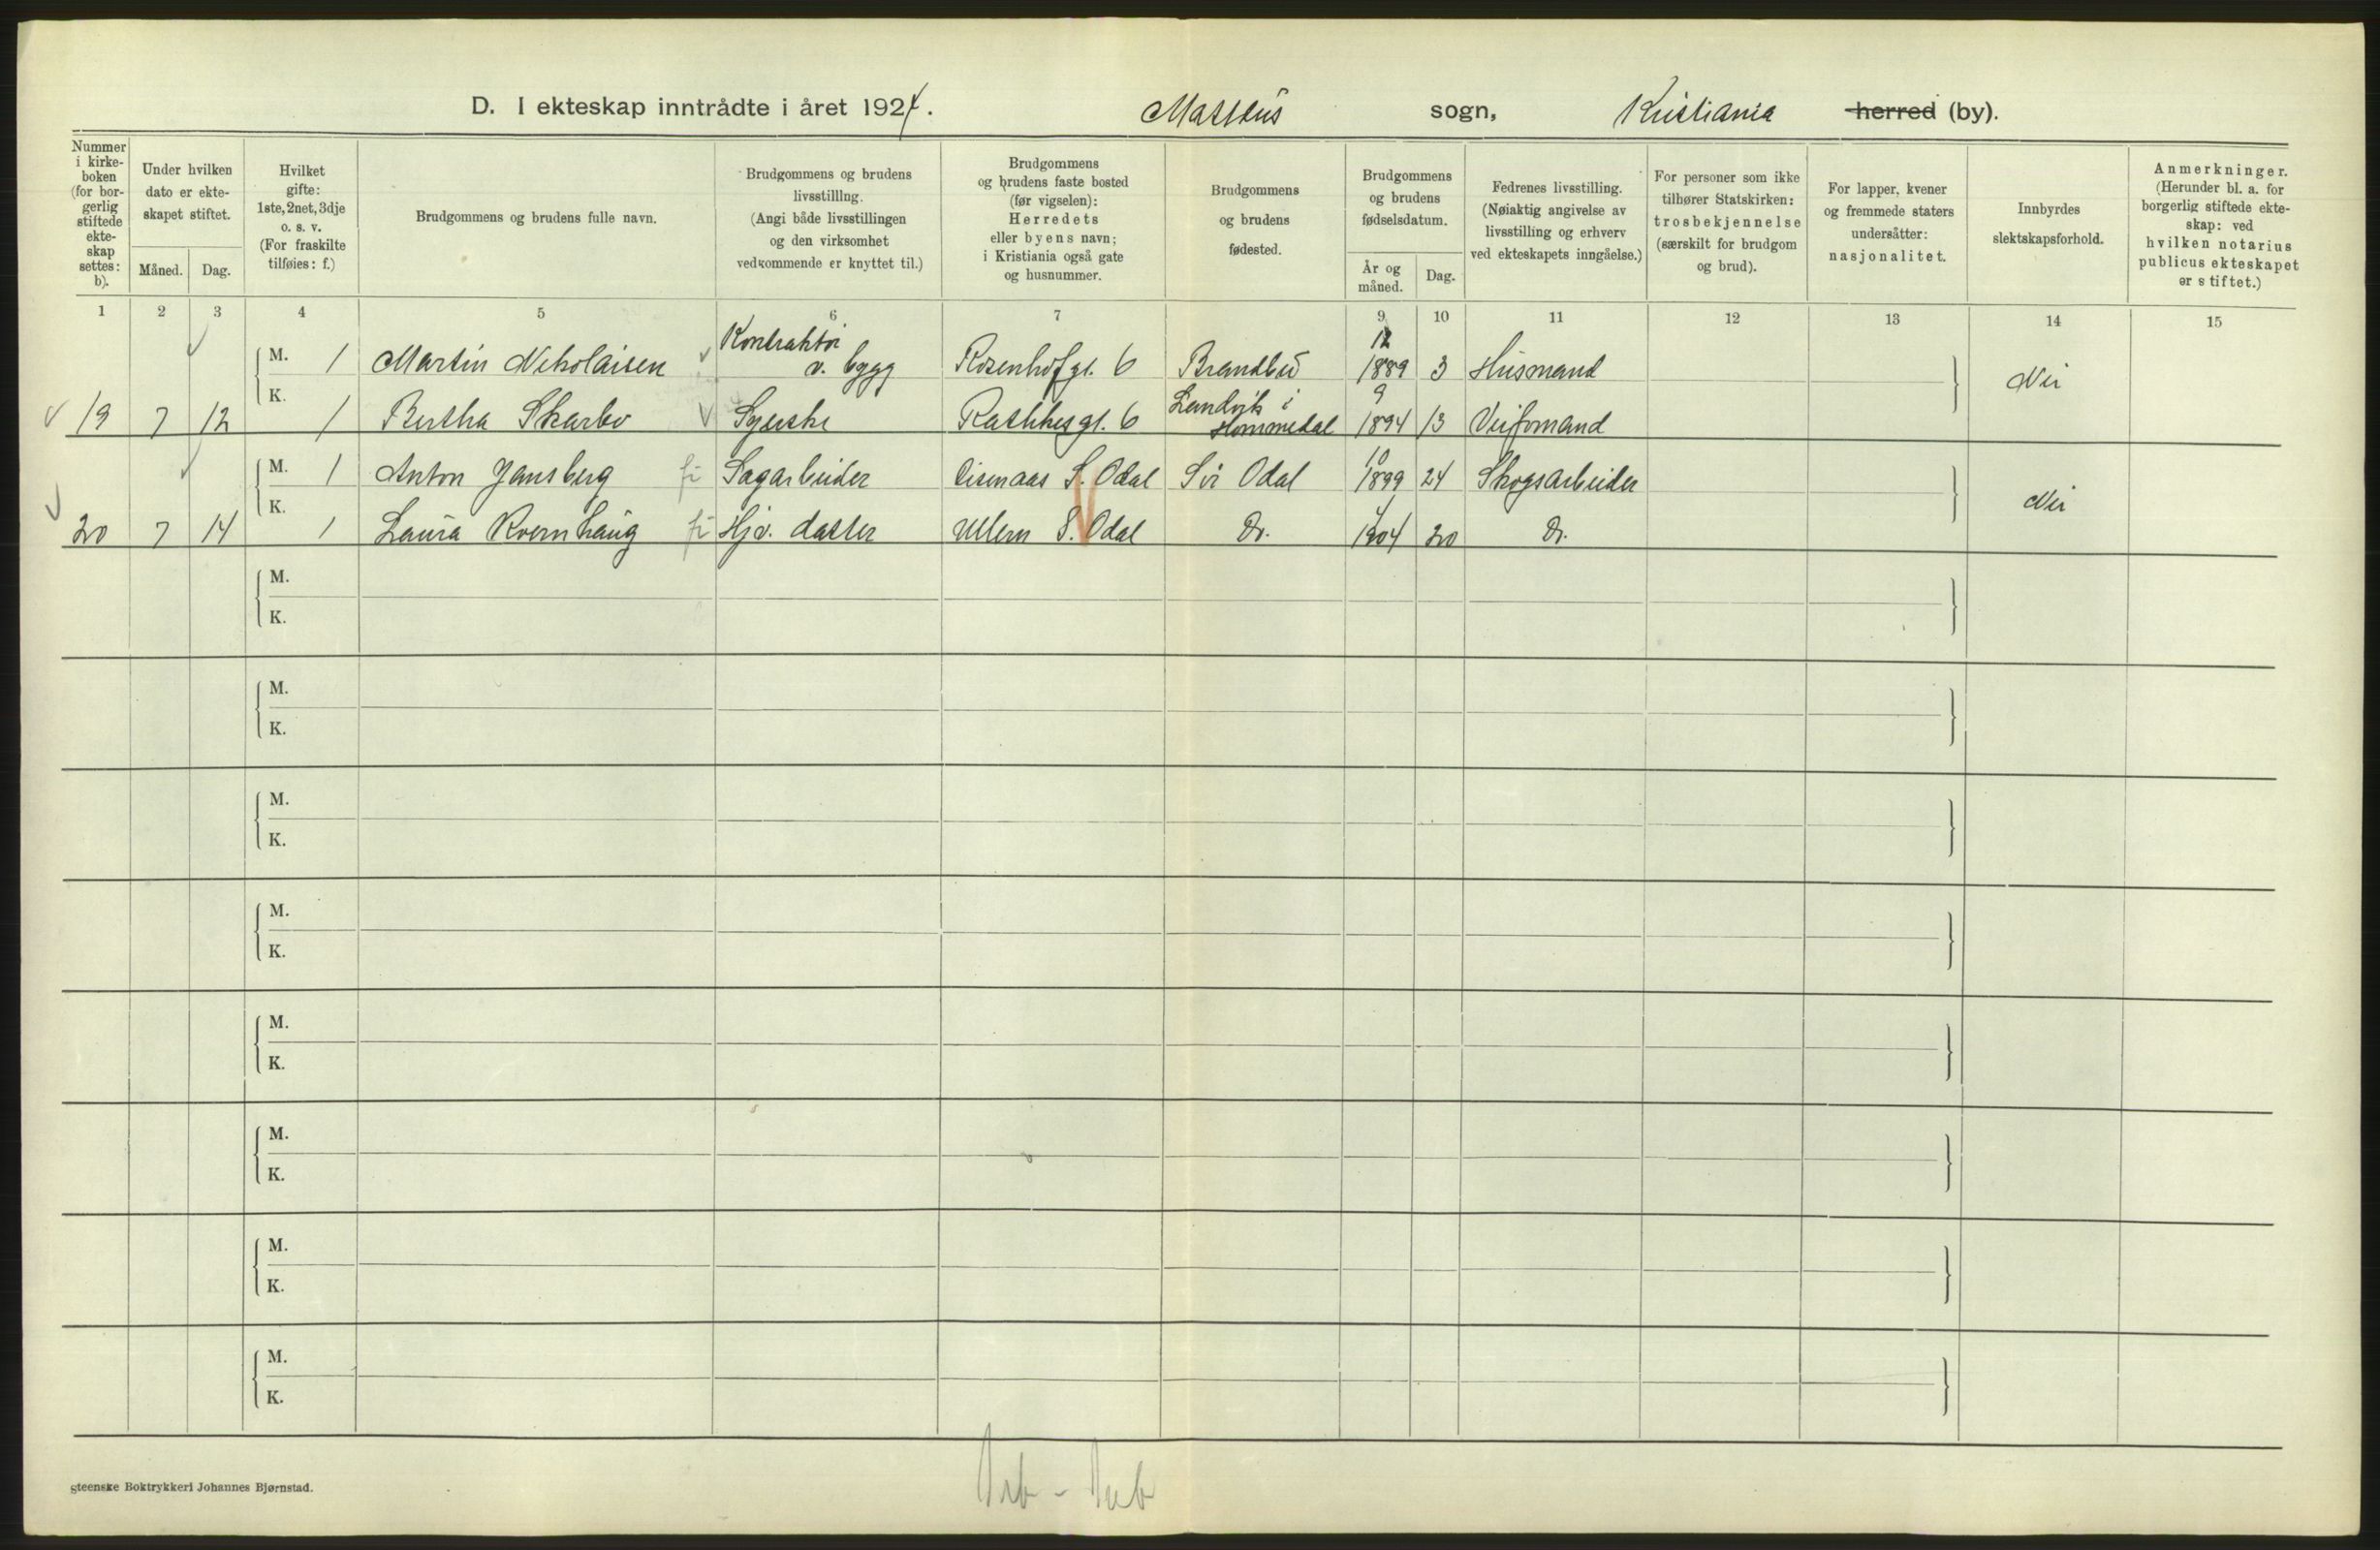 D. I ekteskap inntrådte i året 1924. Matteus sogn, Kristiania herred (by).
Nummer i kirkeboken (for borgerlig stiftede ekteskap settes: b).
Under hvilken dato er ekteskapet stiftet.
Måned. Dag.
Hvilket gifte: 1ste, 2net, 3dje o. s. v. (For fraskilte tilføies: f.)
Brudgommens og brudens fulle navn.
Brudgommens og brudens livsstilling. (Angi både livsstillingen og den virksomhet vedkommende er knyttet til.)
Brudgommens og brudens faste bosted (før vigselen): Herredets eller byens navn; i Kristiania også gate og husnummer.
Brudgommens og brudens fødested.
Brudgommens og brudens fødselsdatum.
År og måned. Dag.
Fedrenes livsstilling. (Nøiaktig angivelse av livsstilling og erhverv ved ekteskapets inngåelse.)
For personer som ikke tilhører Statskirken: trosbekjennelse (særskilt for brudgom og brud).
For lapper, kvener og fremmede staters undersåtter: nasjonalitet.
Innbyrdes slektskapsforhold.
Anmerkninger. (Herunder bl. a. for borgerlig stiftede ekteskap: ved hvilken notarius publicus ekteskapet er stiftet.)
1 2 3 4 5 6 7 9 10 11 12 13 14 15
M. 1 Martin Nikolaisen Kontraktør v. bygg Rosenhofgt. 6 Brandbu 12 1889 3 Husmand Nei
19 7 12 K. 1 Bertha Skarbo Syerske Rathkesgt. 6 Landvik i Hommedal 9 1894 13 Veiformand
M. 1 Anton Jonsberg Sagarbeider S. Odal Sør Odal 10 1899 24 Skogsarbeider Nei
20 7 14 K. 1 Laura Kvernhaug Hjv. datter Ullern S. Odal Do. 4 1904 20 Do.
M.
K.
M.
K.
M.
K.
M.
K.
M.
K.
M.
K.
M.
K.
M.
K.
steenske Boktrykkeri Johannes Bjørnstad.